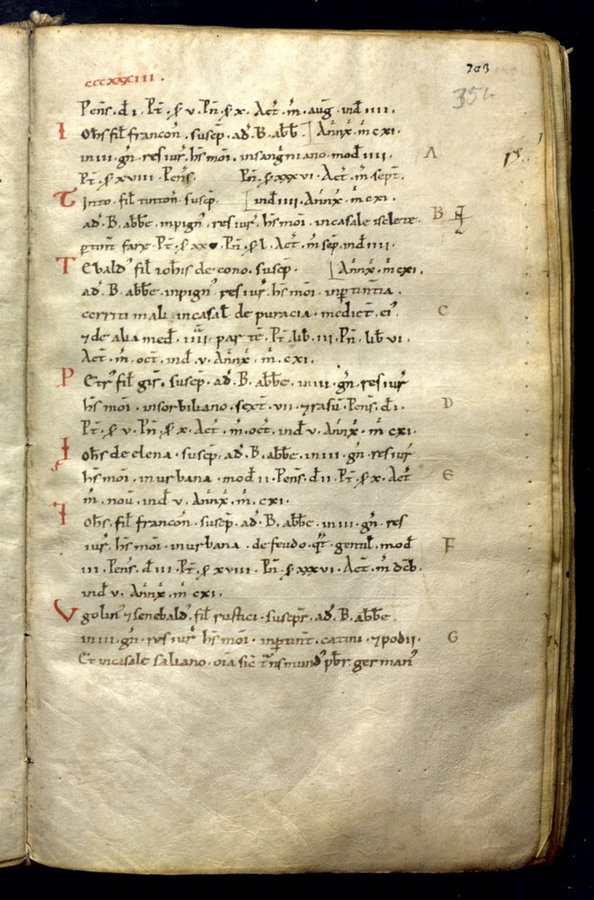 cccxxxiii.
703
354
Penſ. d̄ i. P̄t. ſ v. P̄n. ſ x. Act̄. m̄. auḡ. ind̄ iiii.
I ohs̄ fil̄ francon̄. suscep̄. ad̄. B. abb̄. Ann̄x̄. m̄ cxi.
in iii. gn̄. res iur̄. hs̄ mon̄. in sangniano. mod̄ iiii.
P̄t. ſ xviii. Penſ. P̄n. ſ xxxvi. Act̄. m̄. sept̄.
T into. fil̄ tinton̄. suscep̄. ind̄ iiii. Ann̄x̄. m̄ cxi.
ad̄. B. abb̄e. in pign̄. res iur̄. hs̄ mon̄. in casale
p̄tin̄t̄ farē. P̄t. ſ xx. P̄n. ſ l. Act̄. m̄ sep̄. ind̄ iiii.
T ebald᾽ fil̄ iohis̄ de cono. suscep̄. Ann̄x̄. m̄ cxi.
ad̄. B. abb̄e. in pign̄. res iur̄. hs̄ mon̄. in p̄tin̄tia.
cerriti mali. in casal̄ de puracia. medict̄. ei᾽.
⁊ de alia med̄. iiii. par tē. P̄t. lib̄. iii. P̄n. lib̄ vi.
Act̄. m̄. oct̄. ind̄ v. Ann̄x̄. m̄. cxi.
P etr᾽ fil̄ gis̄. suscep̄. ad̄. B. abb̄e. in iii. gn̄. res iur̄
hs̄ mon̄. in sorbiliano. sext̄. vii. ⁊ rasū. Penſ. d̄ i.
P̄t. ſ v. P̄n. ſ x. Act̄. m̄. oct̄. ind̄ v. Ann̄x̄. m̄ cxi.
I ohs̄ de elena. suscep̄. ad̄. B. abb̄e. in iii. gn̄. res iur̄
hs̄ mon̄. in urbana. mod̄ ii. Penſ. d̄ ii. P̄t. ſ x. Act̄
m̄. nou̅. ind̄ v. Ann̄x̄. m̄. cxi.
I ohs̄. fil̄ francon̄. suscep̄. ad̄. B. abb̄e. in iii. gn̄. res
iur̄. hs̄ mon̄. in urbana. de feudo. q̄t̄. gentil̄. mod̄
iii. Penſ. d̄ iii. P̄t. ſ xviii. P̄n. ſ xxxvi. Act̄. m̄ dc̄b.
ind̄ v. Ann̄x̄. m̄ cxi.
V golin᾽ ⁊ senebald᾽. fil̄ rustici. suscepr̄. ad̄. B. abb̄e.
in iii. gn̄. res iur̄ hs̄ mon̄. in p̄tin̄t̄. catini. ⁊ podii.
Et in casale saliano. oīa sic̄ t̄nsmund᾽ p̄br̄. german᾽
A
B
C
D
E
F
G